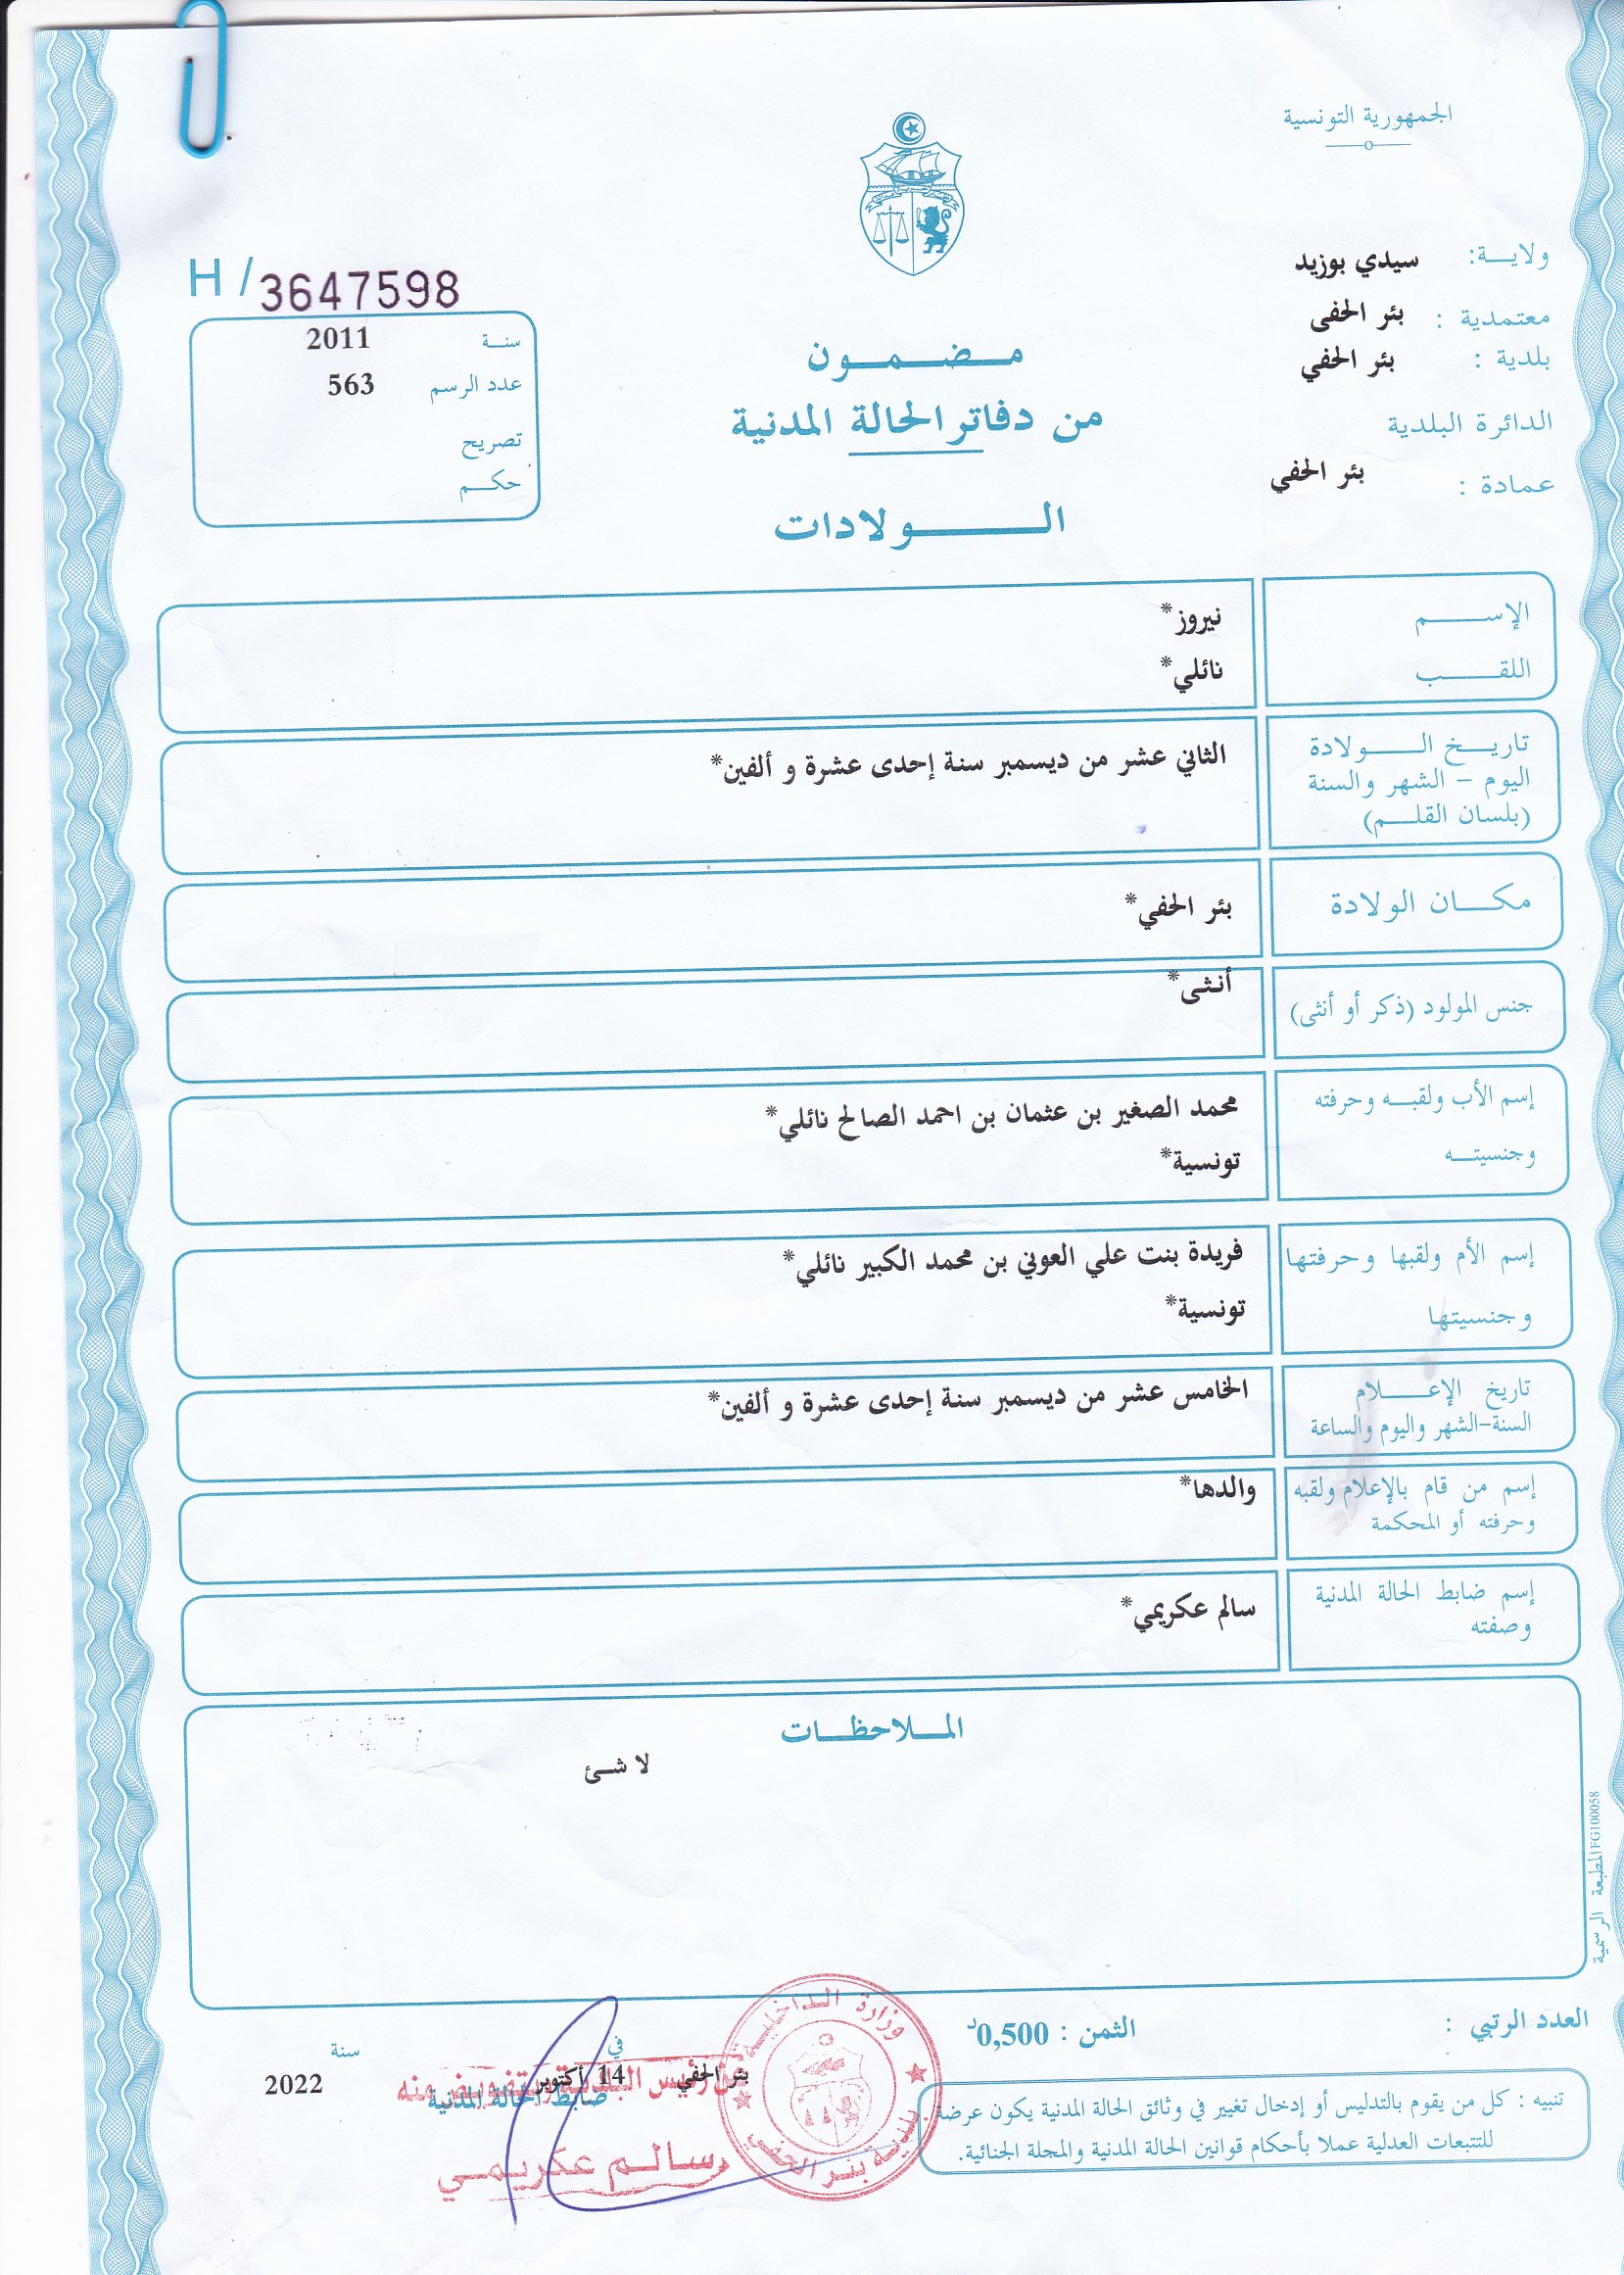 الجمهورية التونسية
ولايــة: سيدي بوزيد
معتمدية : بئر الحفى
بلدية : بئر الحفي
الدائرة البلدية
عمادة : بئر الحفي
H / 3647598
سنــة 2011
عدد الرسم 563
تصريح
حكــم
مـضـمـون
من دفاتر الحالة المدنية
الــولادات
الإســـم نيروز*
اللقـــب نائلي*
تاريــخ الــولادة الثاني عشر من ديسمبر سنة إحدى عشرة و ألفين*
اليوم – الشهر والسنة
(بلسان القلــم)
مكــان الولادة بئر الحفي*
جنس المولود (ذكر أو أنثى) أنثى*
إسم الأب ولقبــه وحرفته محمد الصغير بن عثمان بن احمد الصالح نائلي*
وجنسيتــه تونسية*
إسم الأم ولقبها وحرفتها فريدة بنت علي العوني بن محمد الكبير نائلي*
وجنسيتها تونسية*
تاريخ الإعــلام الخامس عشر من ديسمبر سنة إحدى عشرة و ألفين*
السنة-الشهر واليوم والساعة
إسم من قام بالإعلام ولقبه والدها*
وحرفته أو المحكمة
إسم ضابط الحالة المدنية سالم عكريمي*
وصفته
المــلاحظــات
لا شئ
المطبعة الرسمية FG100058
العدد الرتبي :
الثمن : 0,500د
بئر الحفي في 14 أكتوبر سنة 2022
ضابط الحالة المدنية
عن رئيس البلدية وبتفويض منه
سالم عكريمي
وزارة الداخلية
بلدية بئر الحفي
تنبيه : كل من يقوم بالتدليس أو إدخال تغيير في وثائق الحالة المدنية يكون عرضة
للتتبعات العدلية عملا بأحكام قوانين الحالة المدنية والمجلة الجنائية.